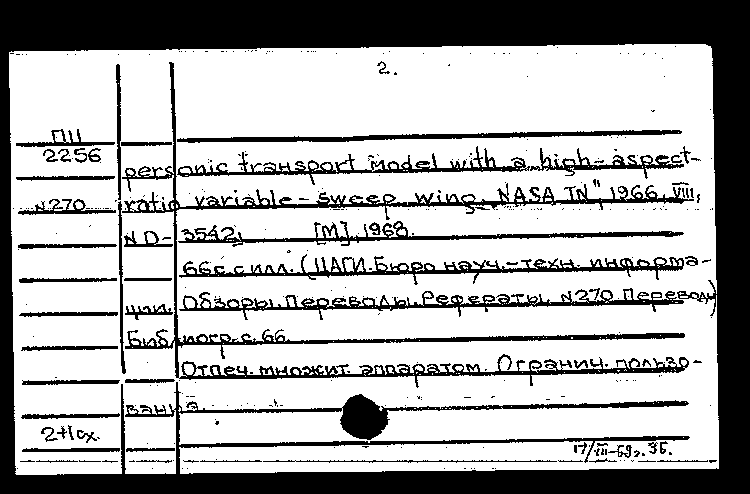 2.
ПШ
2256
personic transport model with a high-aspect-
N270
ratio variable-sweep wing. NASA TN", 1966, VIII,
N D-3542, [М], 1968.
66с. с илл. (ЦАГИ. Бюро науч.-техн. информа-
ции. Обзоры. Переводы. Рефераты. N270 Переводы)
Библиогр. с. 66.
Отпеч. множит аппаратом. Огранич. пользо-
вания.
2+1сх.
17/III-69г. 36.